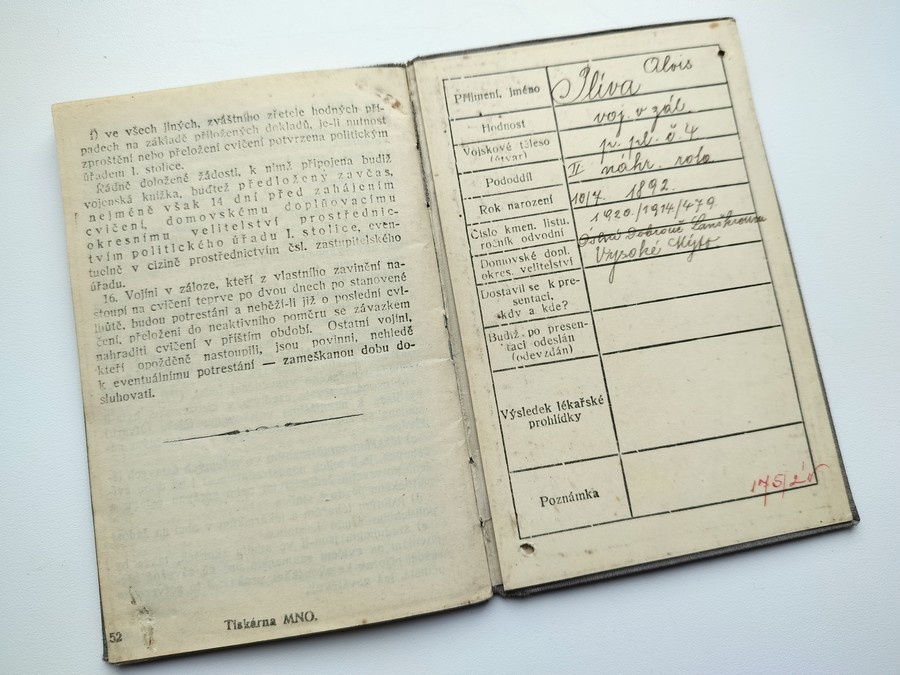 f) ve všech jiných, zvláštního zřetele hodných pří-
padech na základě přiložených dokladů, je-li nutnost
zproštění nebo přeložení cvičení potvrzena politickým
úřadem I. stolice.
Řádně doložené žádosti, k nimž připojena budiž
vojenská knížka, buďtež předloženy zavčas,
nejméně však 14 dní před zahájením
cvičení, domovskému doplňovacímu
okresnímu velitelství prostřednic-
tvím politického úřadu I. stolice, even-
tuelně v cizině prostřednictvím čsl. zastupitelského
úřadu.
16. Vojíni v záloze, kteří z vlastního zavinění na-
stoupí na cvičení teprve po dvou dnech po stanovené
lhůtě, budou potrestáni a neběží-li již o poslední cvi-
čení, přeloženi do neaktivního poměru se závazkem
nahraditi cvičení v příštím období. Ostatní vojíni,
kteří opožděně nastoupili, jsou povinni, nehledě
k eventuálnímu potrestání — zameškanou dobu do-
sluhovati.
Tiskárna MNO.
52
Příjmení, jméno Plíva Alois
Hodnost voj. v zál.
Vojskové těleso
(útvar) p. pl. č. 4
Pododdíl II náhr. rota
Rok narození 10/7. 1892.
Číslo kmen. listu,
ročník odvodní 1920./1914/479.
Domovské dopl.
okres. velitelství Lanškroun
Vysoké Mýto
Dostavil se k pre-
sentaci,
kdy a kde?
Budiž po presen-
taci odeslán
(odevzdán)
Výsledek lékařské
prohlídky
Poznámka 175/2